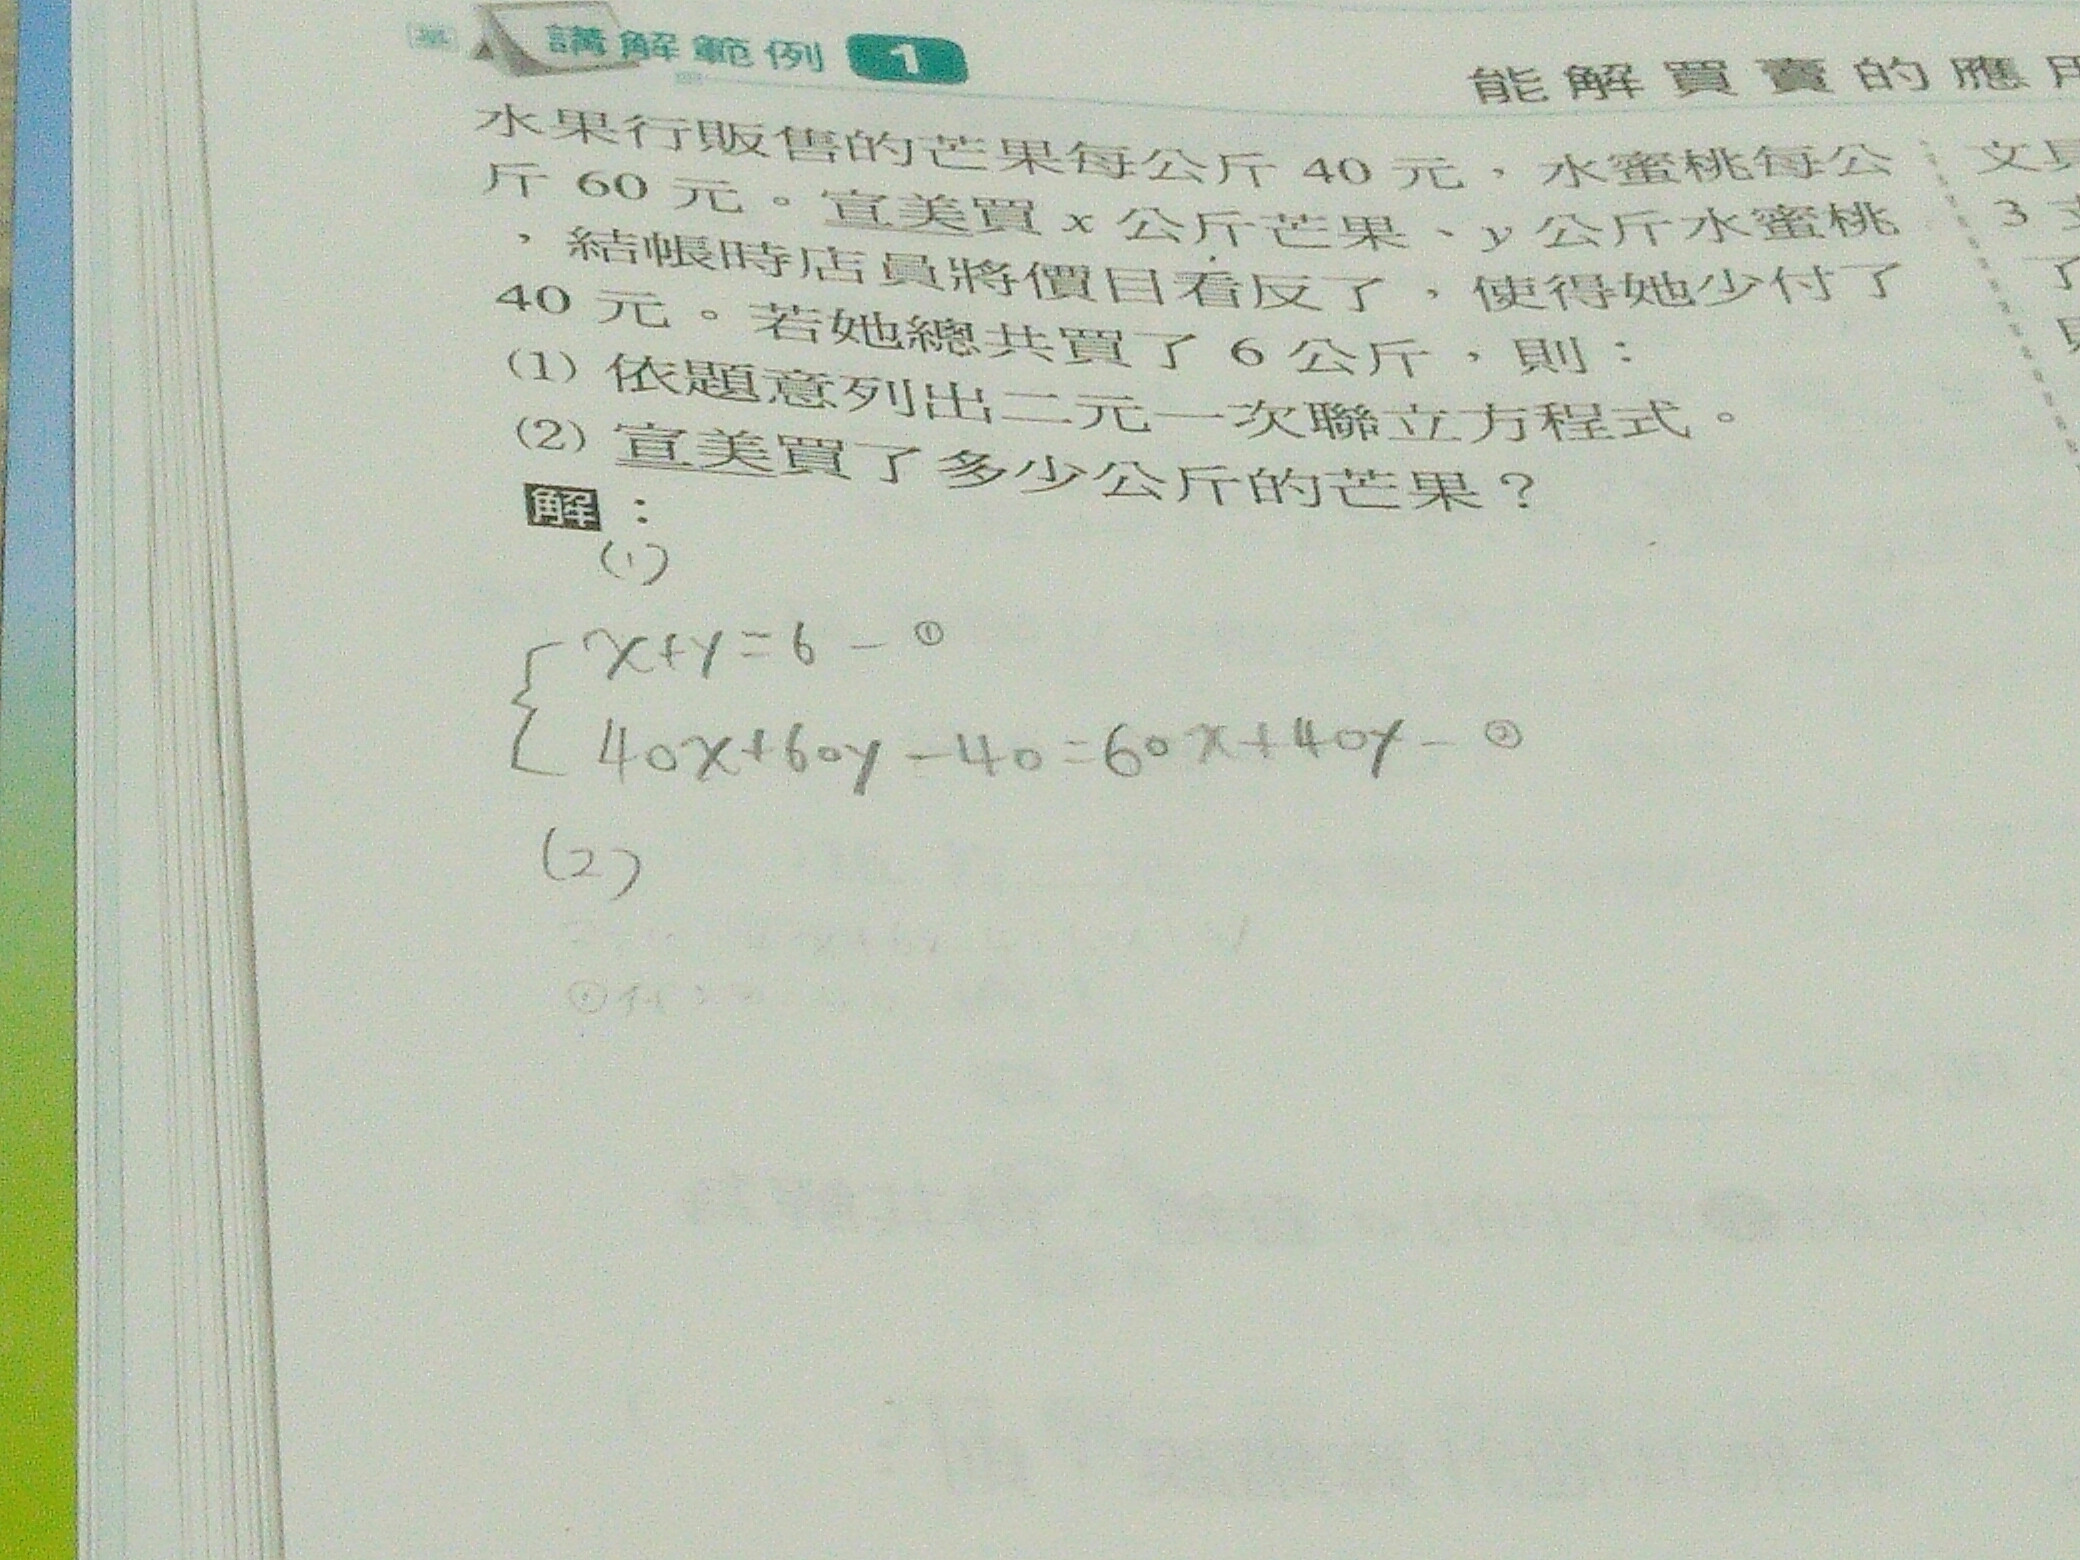 講解範例 1
能解買賣的應用
水果行販售的芒果每公斤 40 元，水蜜桃每公
斤 60 元。宣美買 x 公斤芒果、y 公斤水蜜桃
，結帳時店員將價目看反了，使得她少付了
40 元。若她總共買了 6 公斤，則：
(1) 依題意列出二元一次聯立方程式。
(2) 宣美買了多少公斤的芒果？
解：
(1)
x+y=6-①
40x+60y-40=60x+40y-②
(2)
文
3
了